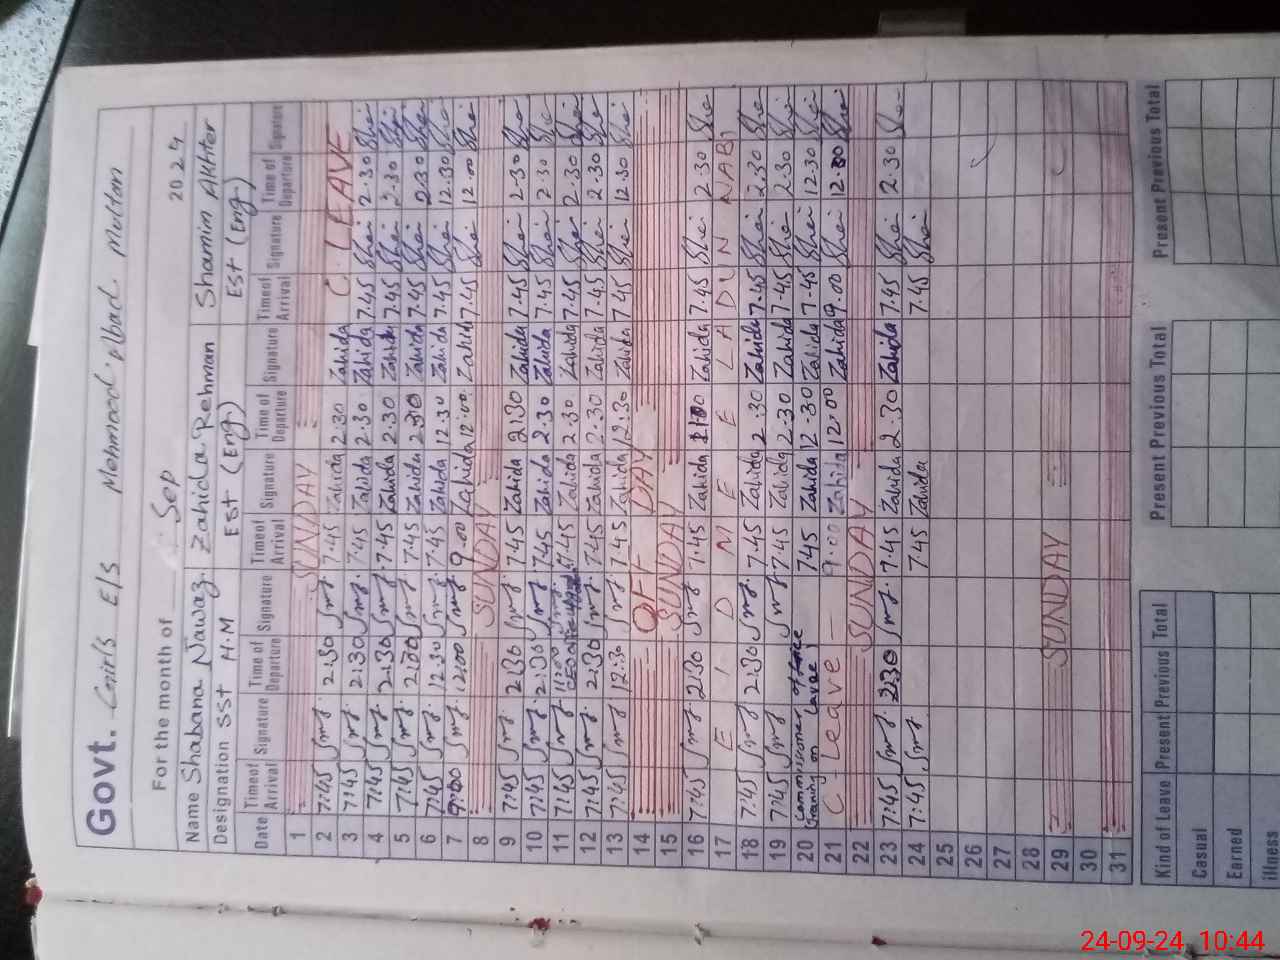 Govt. Girls E/S Mehmood Abad Multan
For the month of Sep 2024
Name Shabana Nawaz. Zahida Rehman Shamin Akhter
Designation SST H.M EST (Eng) EST (Eng)
Date Time of Arrival Signature Time of Departure Signature Time of Arrival Signature Time of Departure Signature Time of Arrival Signature Time of Departure Signature
1 SUNDAY
2 7:45 2:30 7.45 Zahida 2.30 Zahida C. LEAVE
3 7:45 2:30 7.45 Zahida 2.30 Zahida 7.45 2.30
4 7:45 2:30 7.45 Zahida 2.30 Zahida 7.45 2.30
5 7:45 7.45 Zahida 2.30 Zahida 7.45 2.30
6 7:45 12:30 7.45 Zahida 12.30 Zahida 7.45 12.30
7 9:00 12:00 9.00 Zahida 12.00 Zahida 7.45 12.00
8 SUNDAY
9 7:45 2:30 7.45 Zahida 2:30 Zahida 7.45 2.30
10 7:45 2:30 7.45 Zahida 2.30 Zahida 7.45 2.30
11 7:45 11:00 CEO 7.45 Zahida 2.30 Zahida 7.45 2.30
12 7:45 2:30 7.45 Zahida 2.30 Zahida 7.45 2.30
13 7:45 12:30 7.45 Zahida 12:30 Zahida 7.45 12.30
14 OFF DAY
15 SUNDAY
16 7:45 2:30 7.45 Zahida Zahida 7.45 2.30
17 E I D M E E L A D U N N A B I
18 7:45 2:30 7.45 Zahida 2.30 Zahida 7.45 2.30
19 7:45 7.45 Zahida 2.30 Zahida 7.45 2.30
20 Commissioner office training on Leave 7.45 Zahida 12.30 Zahida 7.45 12.30
21 C - Leave — 9.00 Zahida 12.00 Zahida 9.00
22 SUNDAY
23 7:45 2:30 7.45 Zahida 2.30 Zahida 7.45 2.30
24 7:45 7.45 Zahida 7.45
25
26
27
28
29 SUNDAY
30
31
Kind of Leave Present Previous Total Present Previous Total Present Previous Total
Casual
Earned
illness
24-09-24 10:44